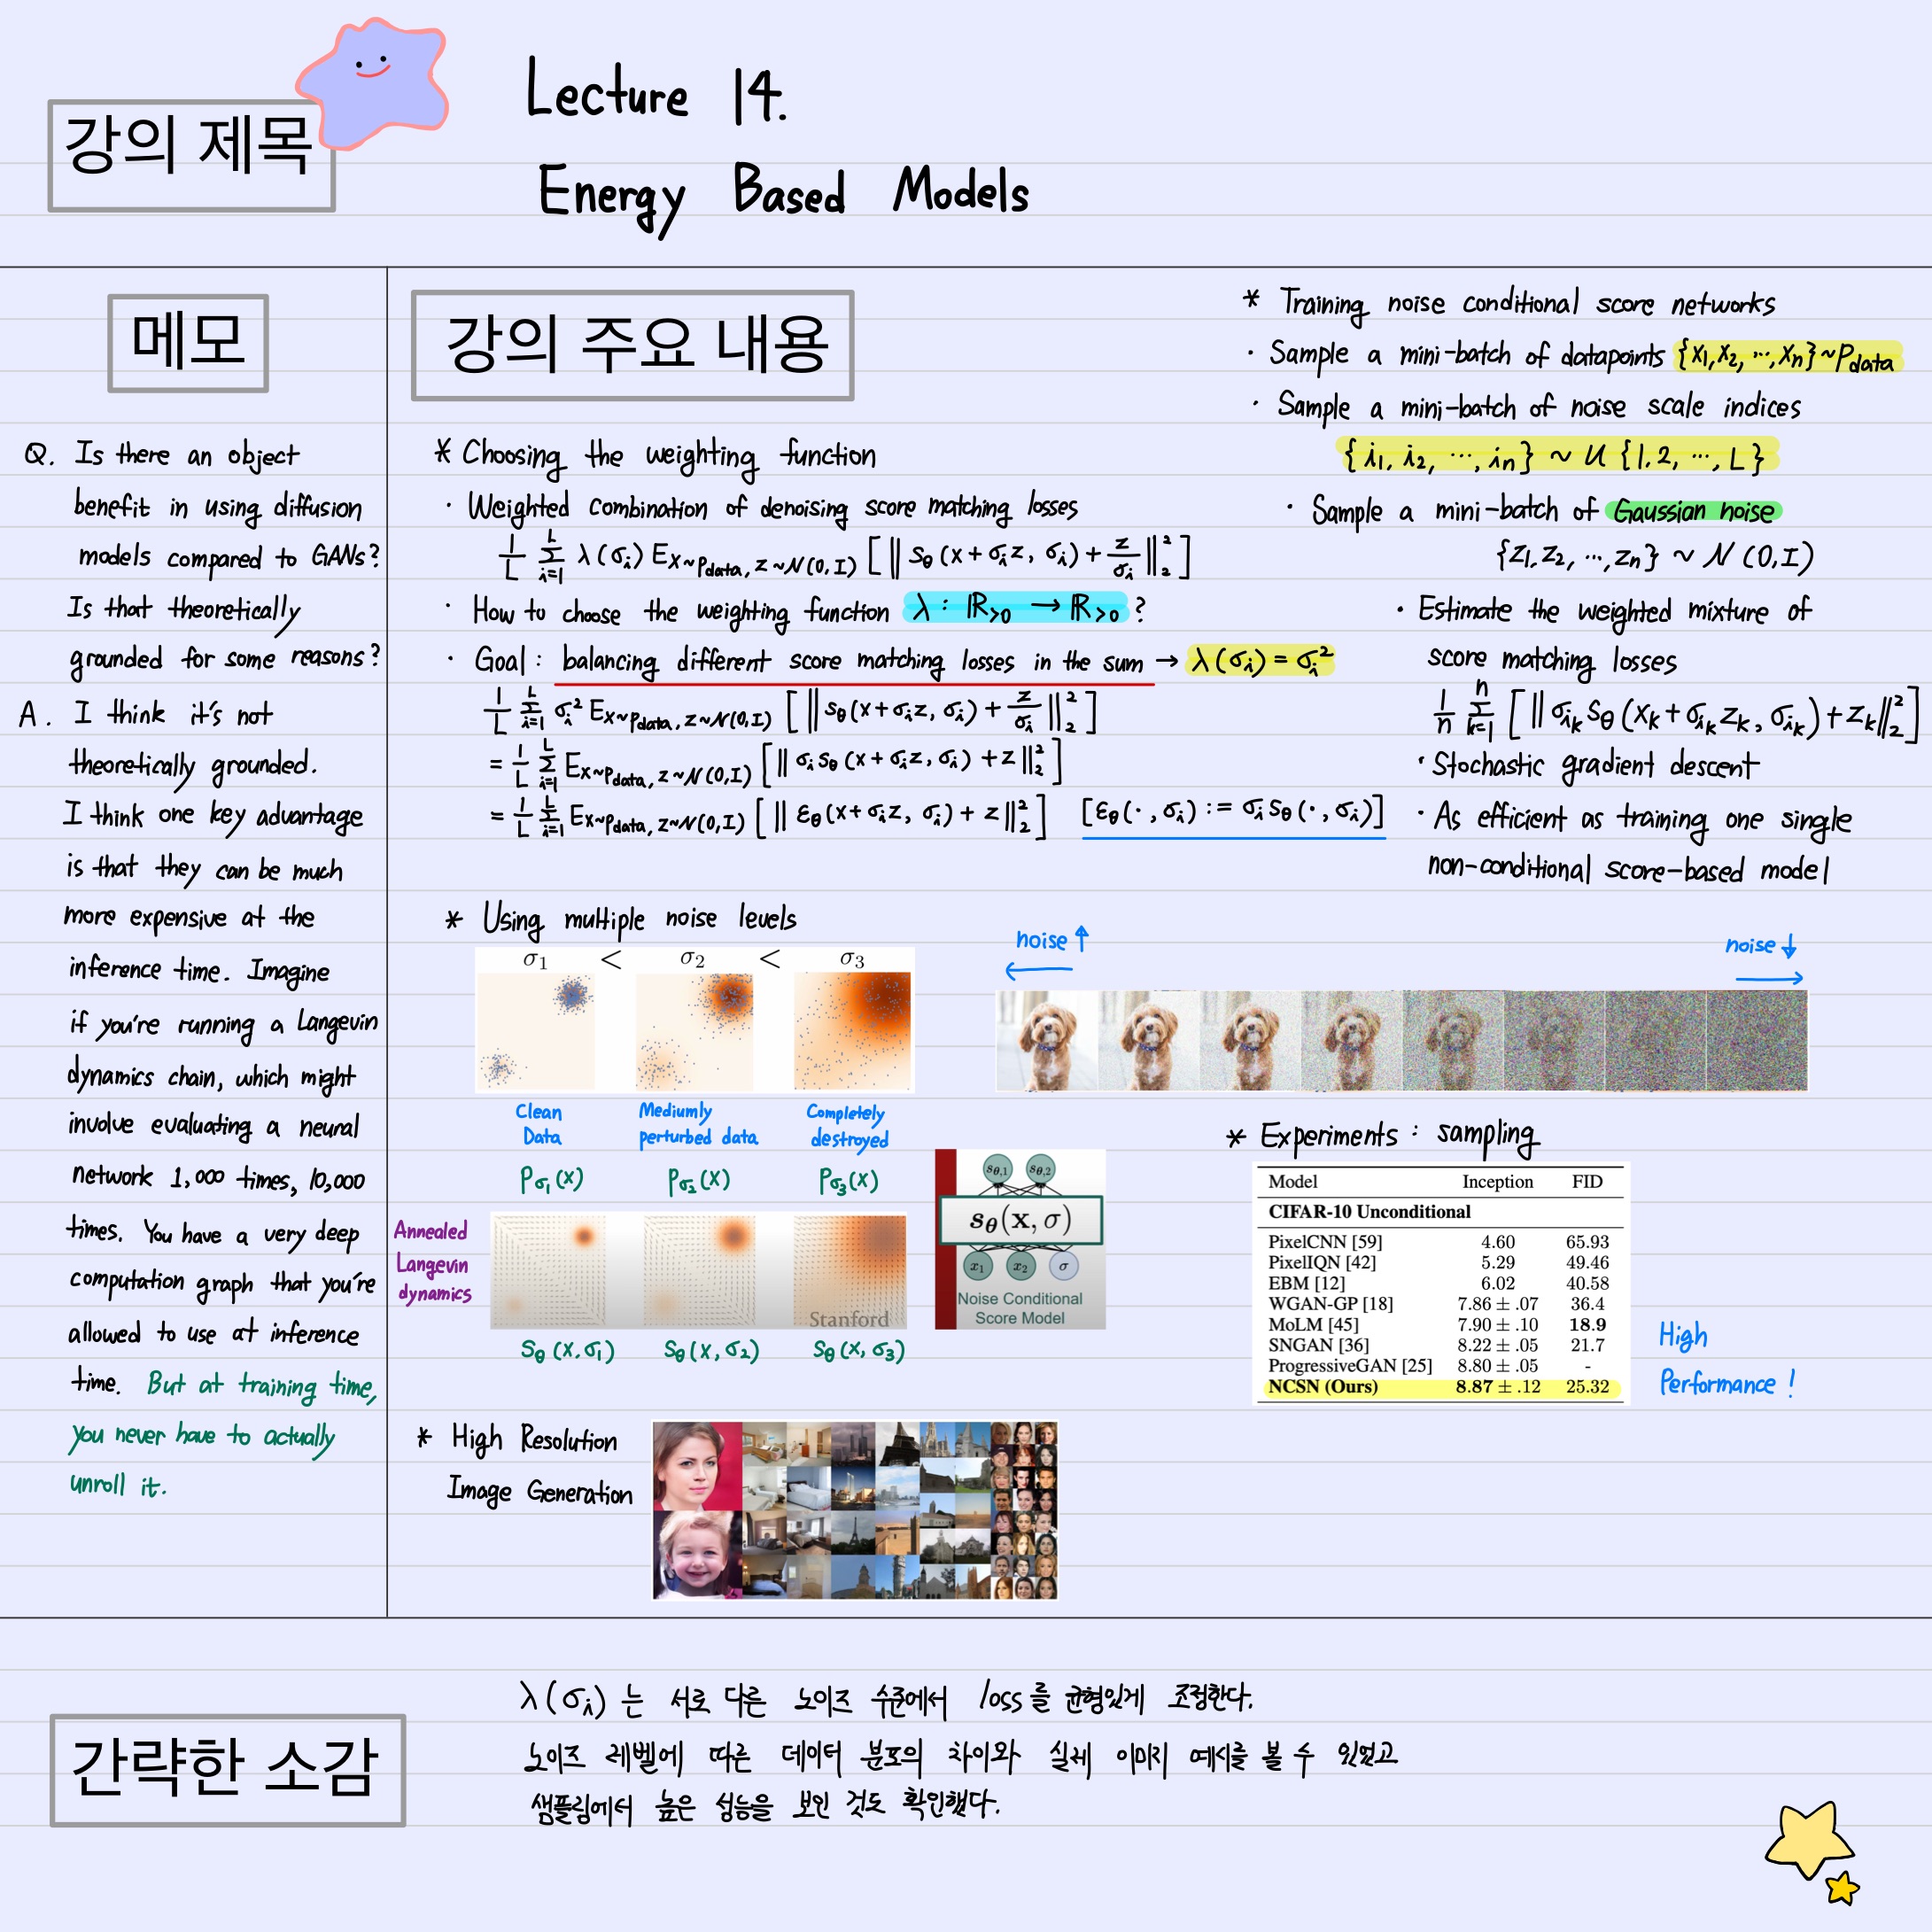 강의 제목
Lecture 14.
Energy Based Models
메모
Q. Is there an object
benefit in using diffusion
models compared to GANs?
Is that theoretically
grounded for some reasons?
A. I think it's not
theoretically grounded.
I think one key advantage
is that they can be much
more expensive at the
inference time. Imagine
if you're running a Langevin
dynamics chain, which might
involve evaluating a neural
network 1,000 times, 10,000
times. You have a very deep
computation graph that you're
allowed to use at inference
time. But at training time,
you never have to actually
unroll it.
강의 주요 내용
* Choosing the weighting function
· Weighted combination of denoising score matching losses
1/L Σ_{i=1}^{L} λ(σ_i) E_{x~p_data, z~N(0,I)} [ || s_θ(x+σ_i z, σ_i) + z/σ_i ||_2^2 ]
· How to choose the weighting function λ : ℝ_{>0} → ℝ_{>0} ?
· Goal : balancing different score matching losses in the sum → λ(σ_i) = σ_i^2
1/L Σ_{i=1}^{L} σ_i^2 E_{x~p_data, z~N(0,I)} [ || s_θ(x+σ_i z, σ_i) + z/σ_i ||_2^2 ]
= 1/L Σ_{i=1}^{L} E_{x~p_data, z~N(0,I)} [ || σ_i s_θ(x+σ_i z, σ_i) + z ||_2^2 ]
= 1/L Σ_{i=1}^{L} E_{x~p_data, z~N(0,I)} [ || ε_θ(x+σ_i z, σ_i) + z ||_2^2 ] [ε_θ(·, σ_i) := σ_i s_θ(·, σ_i)]
* Training noise conditional score networks
· Sample a mini-batch of datapoints {x_1, x_2, ···, x_n} ~ p_data
· Sample a mini-batch of noise scale indices
{i_1, i_2, ···, i_n} ~ U {1, 2, ···, L}
· Sample a mini-batch of Gaussian noise
{z_1, z_2, ···, z_n} ~ N(0, I)
· Estimate the weighted mixture of
score matching losses
1/n Σ_{k=1}^{n} [ || σ_{i_k} s_θ(x_k + σ_{i_k} z_k, σ_{i_k}) + z_k ||_2^2 ]
· Stochastic gradient descent
· As efficient as training one single
non-conditional score-based model
* Using multiple noise levels
σ1 < σ2 < σ3
Clean
Data
Mediumly
perturbed data
Completely
destroyed
p_σ1(x) p_σ2(x) p_σ3(x)
Annealed
Langevin
dynamics
Stanford
s_θ(x, σ_1) s_θ(x, σ_2) s_θ(x, σ_3)
s_{θ,1} s_{θ,2}
s_θ(x, σ)
x_1 x_2 σ
Noise Conditional
Score Model
noise ↑
←
noise ↓
→
* Experiments : sampling
Model Inception FID
CIFAR-10 Unconditional
PixelCNN [59] 4.60 65.93
PixelIQN [42] 5.29 49.46
EBM [12] 6.02 40.58
WGAN-GP [18] 7.86 ± .07 36.4
MoLM [45] 7.90 ± .10 18.9
SNGAN [36] 8.22 ± .05 21.7
ProgressiveGAN [25] 8.80 ± .05 -
NCSN (Ours) 8.87 ± .12 25.32
High
Performance !
* High Resolution
Image Generation
간략한 소감
λ(σ_i) 는 서로 다른 노이즈 수준에서 loss를 균형있게 조정한다.
노이즈 레벨에 따른 데이터 분포의 차이와 실제 이미지 예시를 볼 수 있었고
샘플링에서 높은 성능을 보인 것도 확인했다.